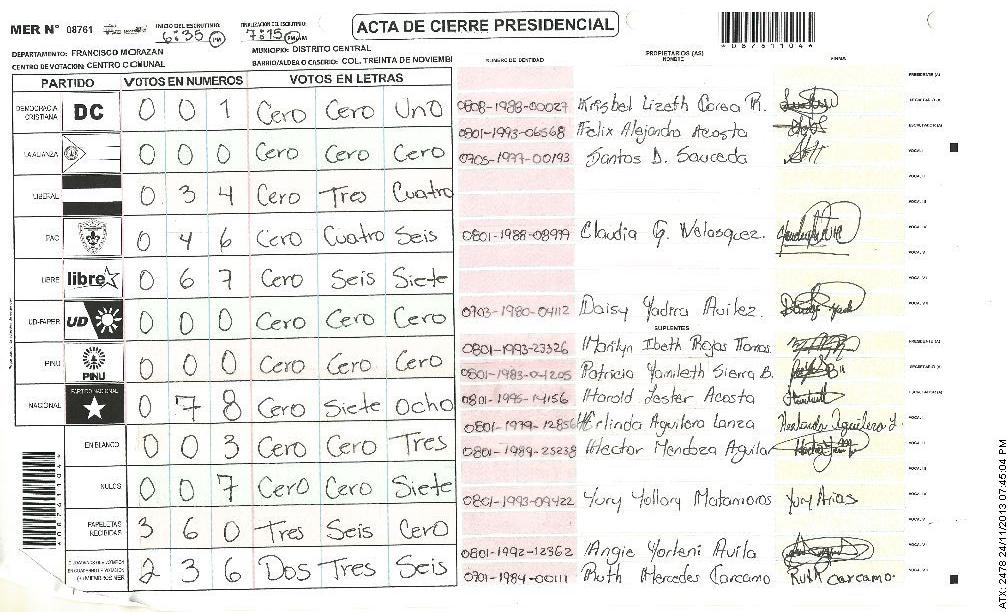 MER N° 08761
INICIO DEL ESCRUTINIO:
6:35 PM
FINALIZACION DEL ESCRUTINIO:
7:15 PM AM
ACTA DE CIERRE PRESIDENCIAL
*08761104*
DEPARTAMENTO: FRANCISCO MORAZAN
MUNICIPIO: DISTRITO CENTRAL
CENTRO DE VOTACION: CENTRO COMUNAL
BARRIO/ALDEA O CASERIO: COL. TREINTA DE NOVIEMB
NUMERO DE IDENTIDAD
PROPIETARIOS (AS)
NOMBRE
FIRMA
PARTIDO
VOTOS EN NUMEROS
VOTOS EN LETRAS
DEMOCRACIA CRISTIANA DC 0 0 1 Cero Cero Uno
LA ALIANZA 0 0 0 Cero Cero Cero
LIBERAL 0 3 4 Cero Tres Cuatro
PAC 0 4 6 Cero Cuatro Seis
LIBRE libre 0 6 7 Cero Seis Siete
UD-FAPER UD 0 0 0 Cero Cero Cero
PINU PINU 0 0 0 Cero Cero Cero
NACIONAL PARTIDO NACIONAL 0 7 8 Cero Siete Ocho
EN BLANCO 0 0 3 Cero Cero Tres
NULOS 0 0 7 Cero Cero Siete
PAPELETAS RECIBIDAS 3 6 0 Tres Seis Cero
2 3 6 Dos Tres Seis
PRESIDENTE (A)
0808-1988-00027 Krisbel Lizeth Carea R. SECRETARIO (A)
0801-1993-06568 Felix Alejandro Acosta ESCRUTADOR (A)
0705-1977-00193 Santos D. Sauceda VOCAL I
VOCAL II
VOCAL III
0801-1988-08979 Claudia G. Velasquez. VOCAL IV
VOCAL V
VOCAL VI
0703-1980-04112 Daisy Yadira Avilez. VOCAL VII
SUPLENTES
0801-1993-23326 Marilyn Ibeth Rojas PRESIDENTE (A)
0801-1983-04205 Patricia Yamileth Sierra B. SECRETARIO (A)
0801-1995-14156 Harold Lester Acosta ESCRUTADOR (A)
0801-1979-12856 Erlinda Aguilera Lanza VOCAL I
0801-1989-25238 Hector Mendoza Aguilar VOCAL II
VOCAL III
0801-1993-09422 Yury Yollary Matamoros Yury Arias VOCAL IV
VOCAL V
0801-1992-12362 Angie Yorleni Avila VOCAL VI
0701-1984-00111 Ruth Mercedes Carcamo Ruth carcamo. VOCAL VII
*08761104*
ATX: 2478 24/11/2013 07:45:04 PM